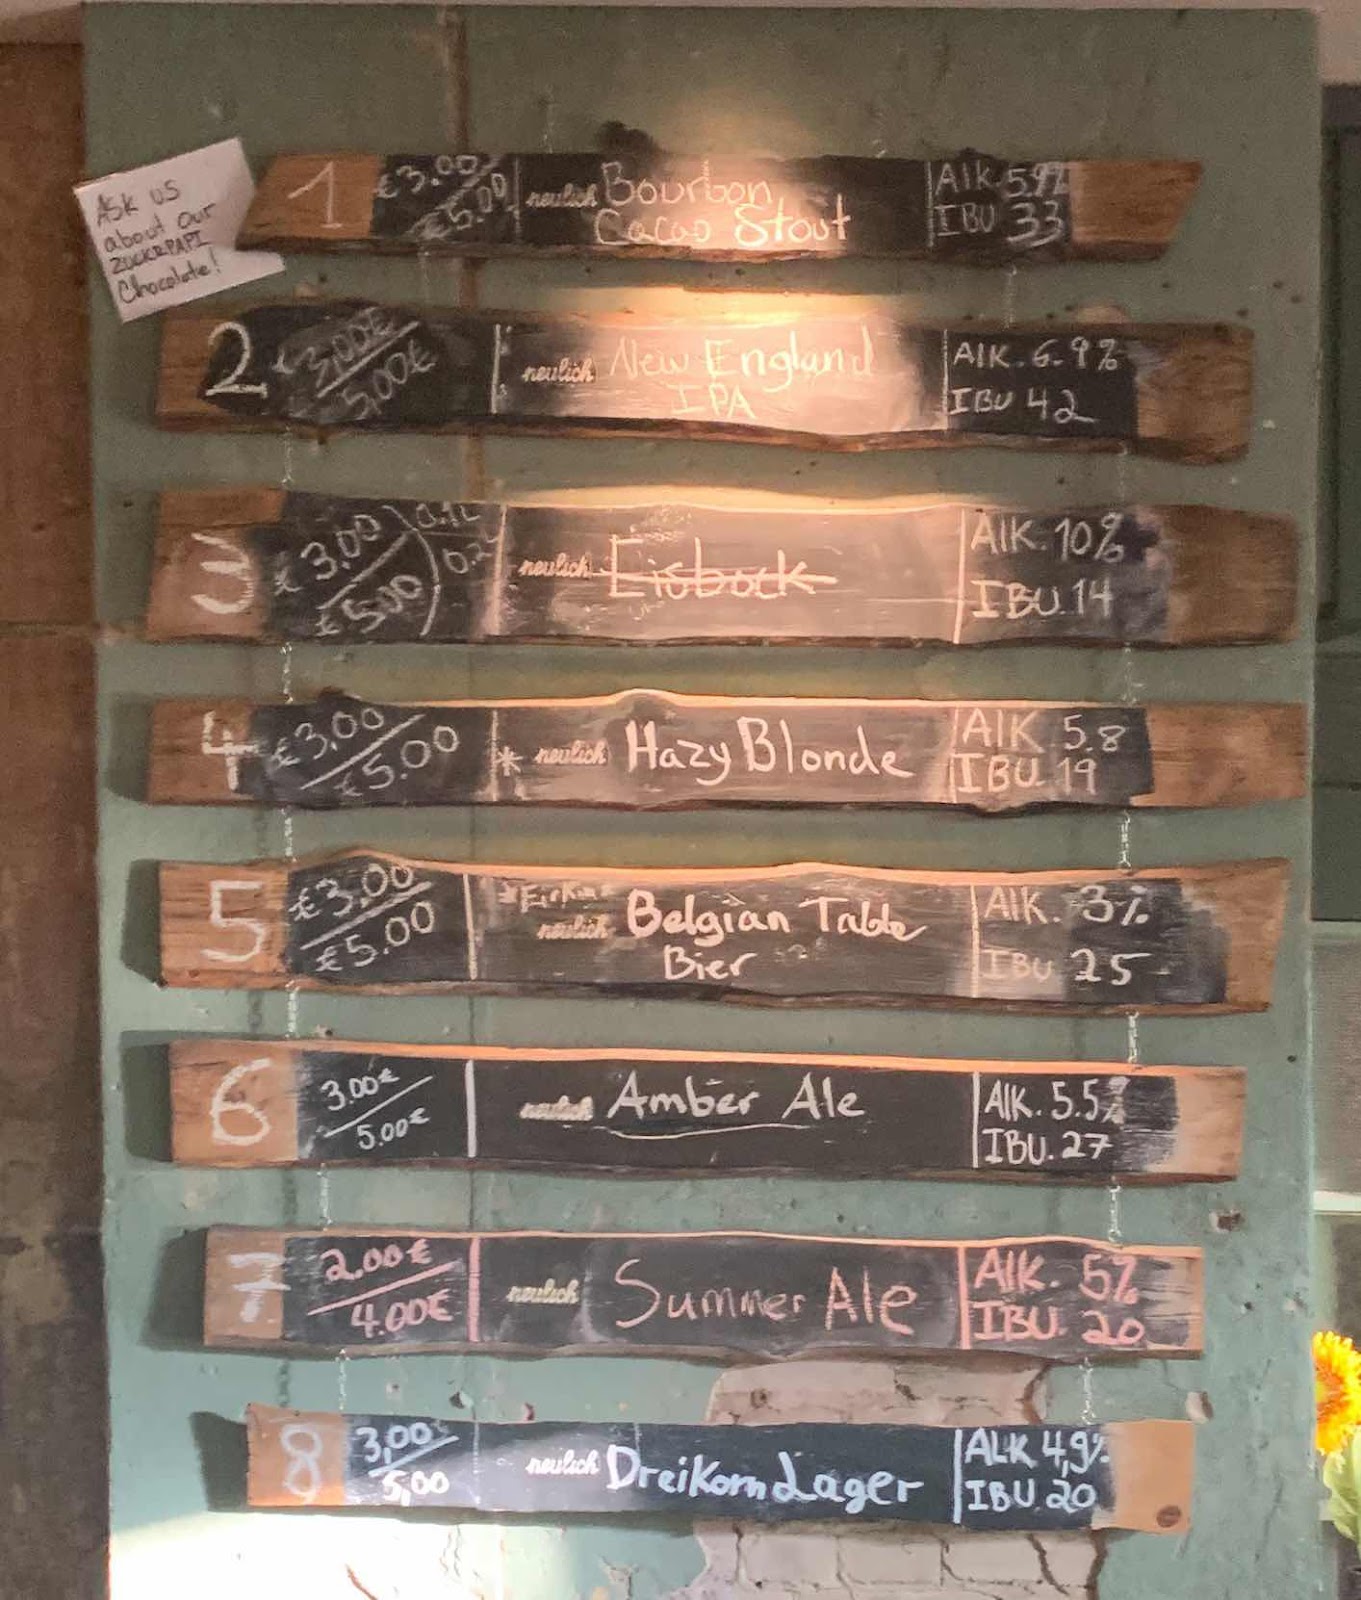 Ask us
about our
ZUCKRPAPI
Chocolate!
1 €3.00 €5.00 neulich Bourbon
Cacao Stout
Alk 5.9%
IBU 33
2 3,00€ 5,00€ neulich New England
IPA
Alk. 6.9%
IBU 42
3 € 3.00 € 5.00 neulich Eisbock
Alk. 10%
IBU. 14
4 €3.00 €5.00 * neulich Hazy Blonde
Alk 5.8
IBU. 19
5 €3.00 €5.00 neulich Belgian Table
Bier
Alk. 3%
IBU 25
6 3.00€ 5.00€ neulich Amber Ale
Alk. 5.5%
IBU. 27
7 2.00€ 4.00€ neulich Summer Ale
Alk. 5%
IBU. 20
8 3,00 5,00 neulich Dreikorn Lager
ALK 4,9%
IBU. 20